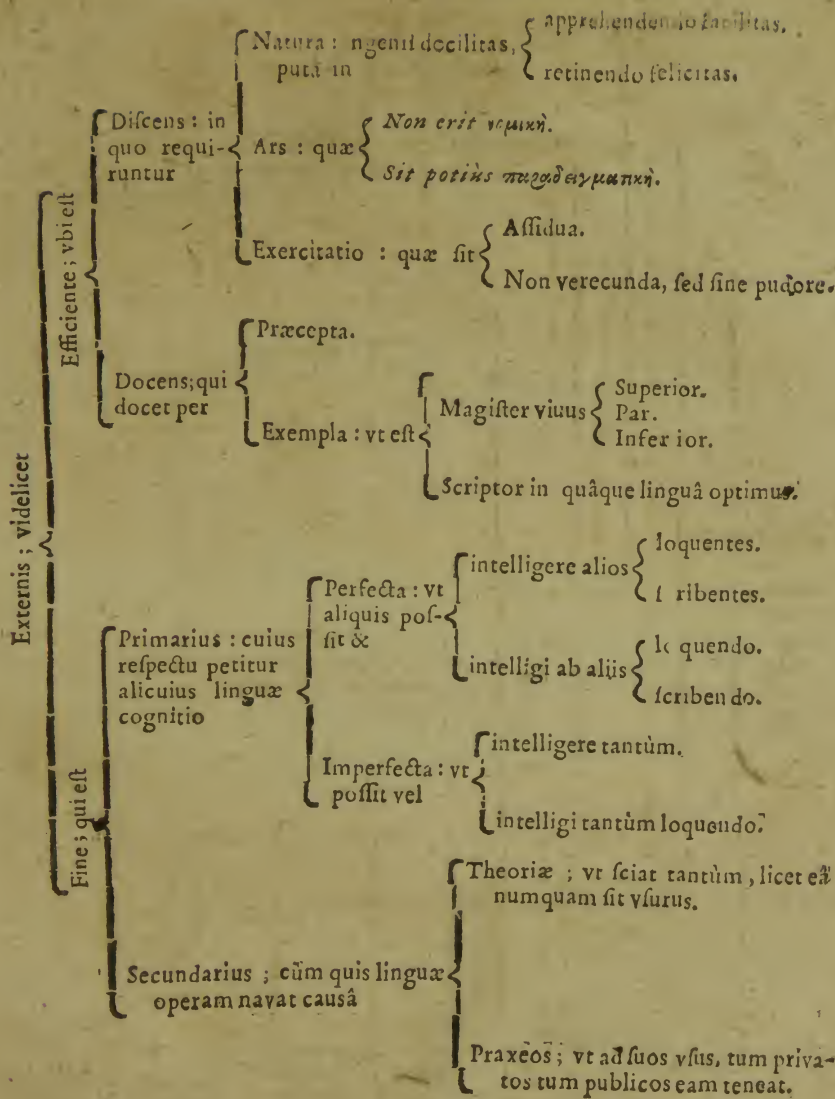 Externis ; videlicet
Efficiente ; vbi eſt
Diſcens : in
quo requi-
runtur
Natura : ngenii docilitas,
putà in
apprehendendo facilitas.
retinendo felicitas.
Ars : quæ
Non erit νομικὴ.
Sit potiùs παραδειγματικὴ.
Exercitatio : quæ ſit
Aſſidua.
Non verecunda, ſed ſine pudore.
Docens; qui
docet per
Præcepta.
Exempla : vt eſt
Magiſter viuus
Superior.
Par.
Infer ior.
Scriptor in quâque linguâ optimus.
Fine ; qui eſt
Primarius : cuius
reſpectu petitur
alicuius linguæ
cognitio
Perfecta : vt
aliquis poſ-
ſit &
intelligere alios
loquentes.
ſ ribentes.
intelligi ab aliis
lo quendo.
ſcriben do.
Imperfecta : vt
poſſit vel
intelligere tantùm.
intelligi tantùm loquendo.
Secundarius ; cùm quis linguæ
operam navat causâ
Theoriæ ; vt ſciat tantùm, licet eâ
numquam ſit vſurus.
Praxeos ; vt ad ſuos vſus, tum priva-
tos tum publicos eam teneat.